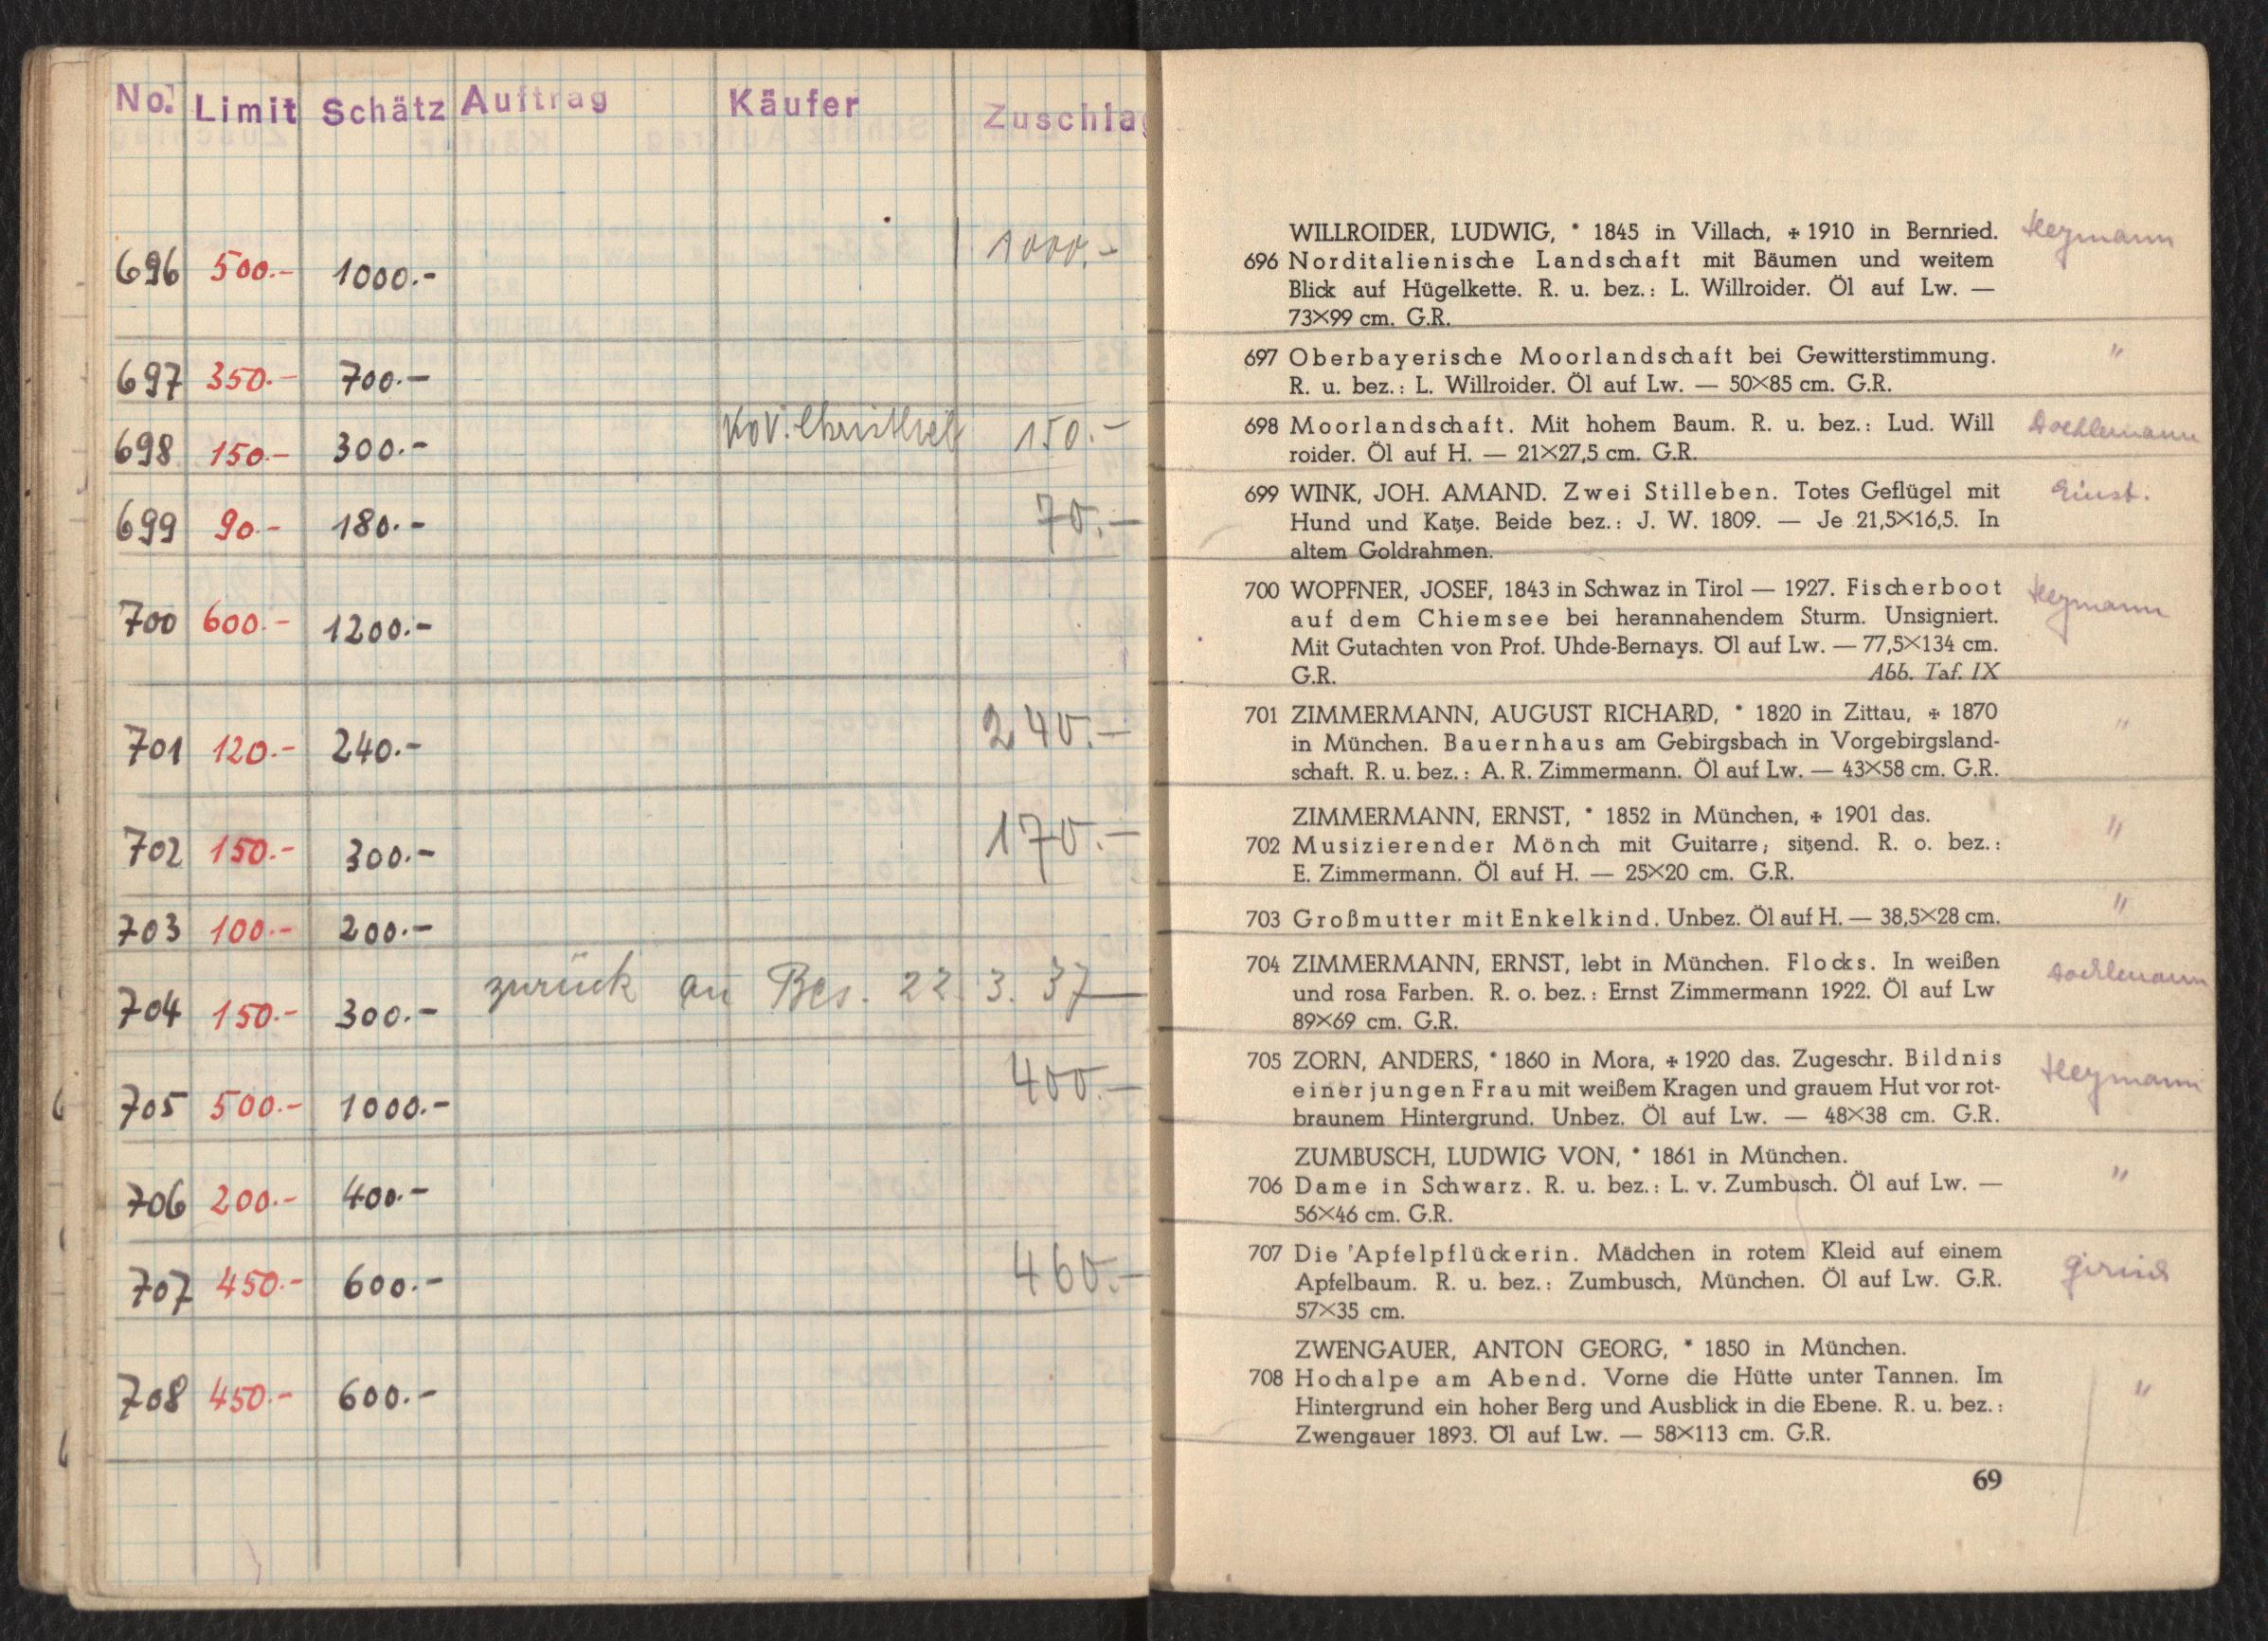 No. Limit Schätz Auftrag Käufer Zuschlag
696 500.- 1000.- 1000.-
697 350.- 700.-
698 150.- 300.- 150.-
699 90.- 180.- 70.-
700 600.- 1200.-
701 120.- 240.- 240.-
702 150.- 300.- 170.-
703 100.- 200.-
704 150.- 300.- zurück an Bes. 22. 3. 37
705 500.- 1000.- 400.-
706 200.- 400.-
707 450.- 600.- 460.-
708 450.- 600.-
WILLROIDER, LUDWIG, * 1845 in Villach, ✠ 1910 in Bernried. Heymann
696 Norditalienische Landschaft mit Bäumen und weitem
Blick auf Hügelkette. R. u. bez.: L. Willroider. Öl auf Lw. —
73×99 cm. G.R.
697 Oberbayerische Moorlandschaft bei Gewitterstimmung. "
R. u. bez.: L. Willroider. Öl auf Lw. — 50×85 cm. G.R.
698 Moorlandschaft. Mit hohem Baum. R. u. bez.: Lud. Will Doehlemann
roider. Öl auf H. — 21×27,5 cm. G.R.
699 WINK, JOH. AMAND. Zwei Stilleben. Totes Geflügel mit
Hund und Katze. Beide bez.: J. W. 1809. — Je 21,5×16,5. In
altem Goldrahmen.
700 WOPFNER, JOSEF, 1843 in Schwaz in Tirol — 1927. Fischerboot Heymann
auf dem Chiemsee bei herannahendem Sturm. Unsigniert.
Mit Gutachten von Prof. Uhde-Bernays. Öl auf Lw. — 77,5×134 cm.
G.R. Abb. Taf. IX
701 ZIMMERMANN, AUGUST RICHARD, * 1820 in Zittau, ✠ 1870 "
in München. Bauernhaus am Gebirgsbach in Vorgebirgsland-
schaft. R. u. bez.: A. R. Zimmermann. Öl auf Lw. — 43×58 cm. G.R.
ZIMMERMANN, ERNST, * 1852 in München, ✠ 1901 das. "
702 Musizierender Mönch mit Guitarre; sitzend. R. o. bez.:
E. Zimmermann. Öl auf H. — 25×20 cm. G.R.
703 Großmutter mit Enkelkind. Unbez. Öl auf H. — 38,5×28 cm. "
704 ZIMMERMANN, ERNST, lebt in München. Flocks. In weißen Doehlemann
und rosa Farben. R. o. bez.: Ernst Zimmermann 1922. Öl auf Lw
89×69 cm. G.R.
705 ZORN, ANDERS, * 1860 in Mora, ✠ 1920 das. Zugeschr. Bildnis Heymann
einer jungen Frau mit weißem Kragen und grauem Hut vor rot-
braunem Hintergrund. Unbez. Öl auf Lw. — 48×38 cm. G.R.
ZUMBUSCH, LUDWIG VON, * 1861 in München. "
706 Dame in Schwarz. R. u. bez.: L. v. Zumbusch. Öl auf Lw. —
56×46 cm. G.R.
707 Die 'Apfelpflückerin. Mädchen in rotem Kleid auf einem
Apfelbaum. R. u. bez.: Zumbusch, München. Öl auf Lw. G.R.
57×35 cm.
ZWENGAUER, ANTON GEORG, * 1850 in München.
708 Hochalpe am Abend. Vorne die Hütte unter Tannen. Im "
Hintergrund ein hoher Berg und Ausblick in die Ebene. R. u. bez.:
Zwengauer 1893. Öl auf Lw. — 58×113 cm. G.R.
69